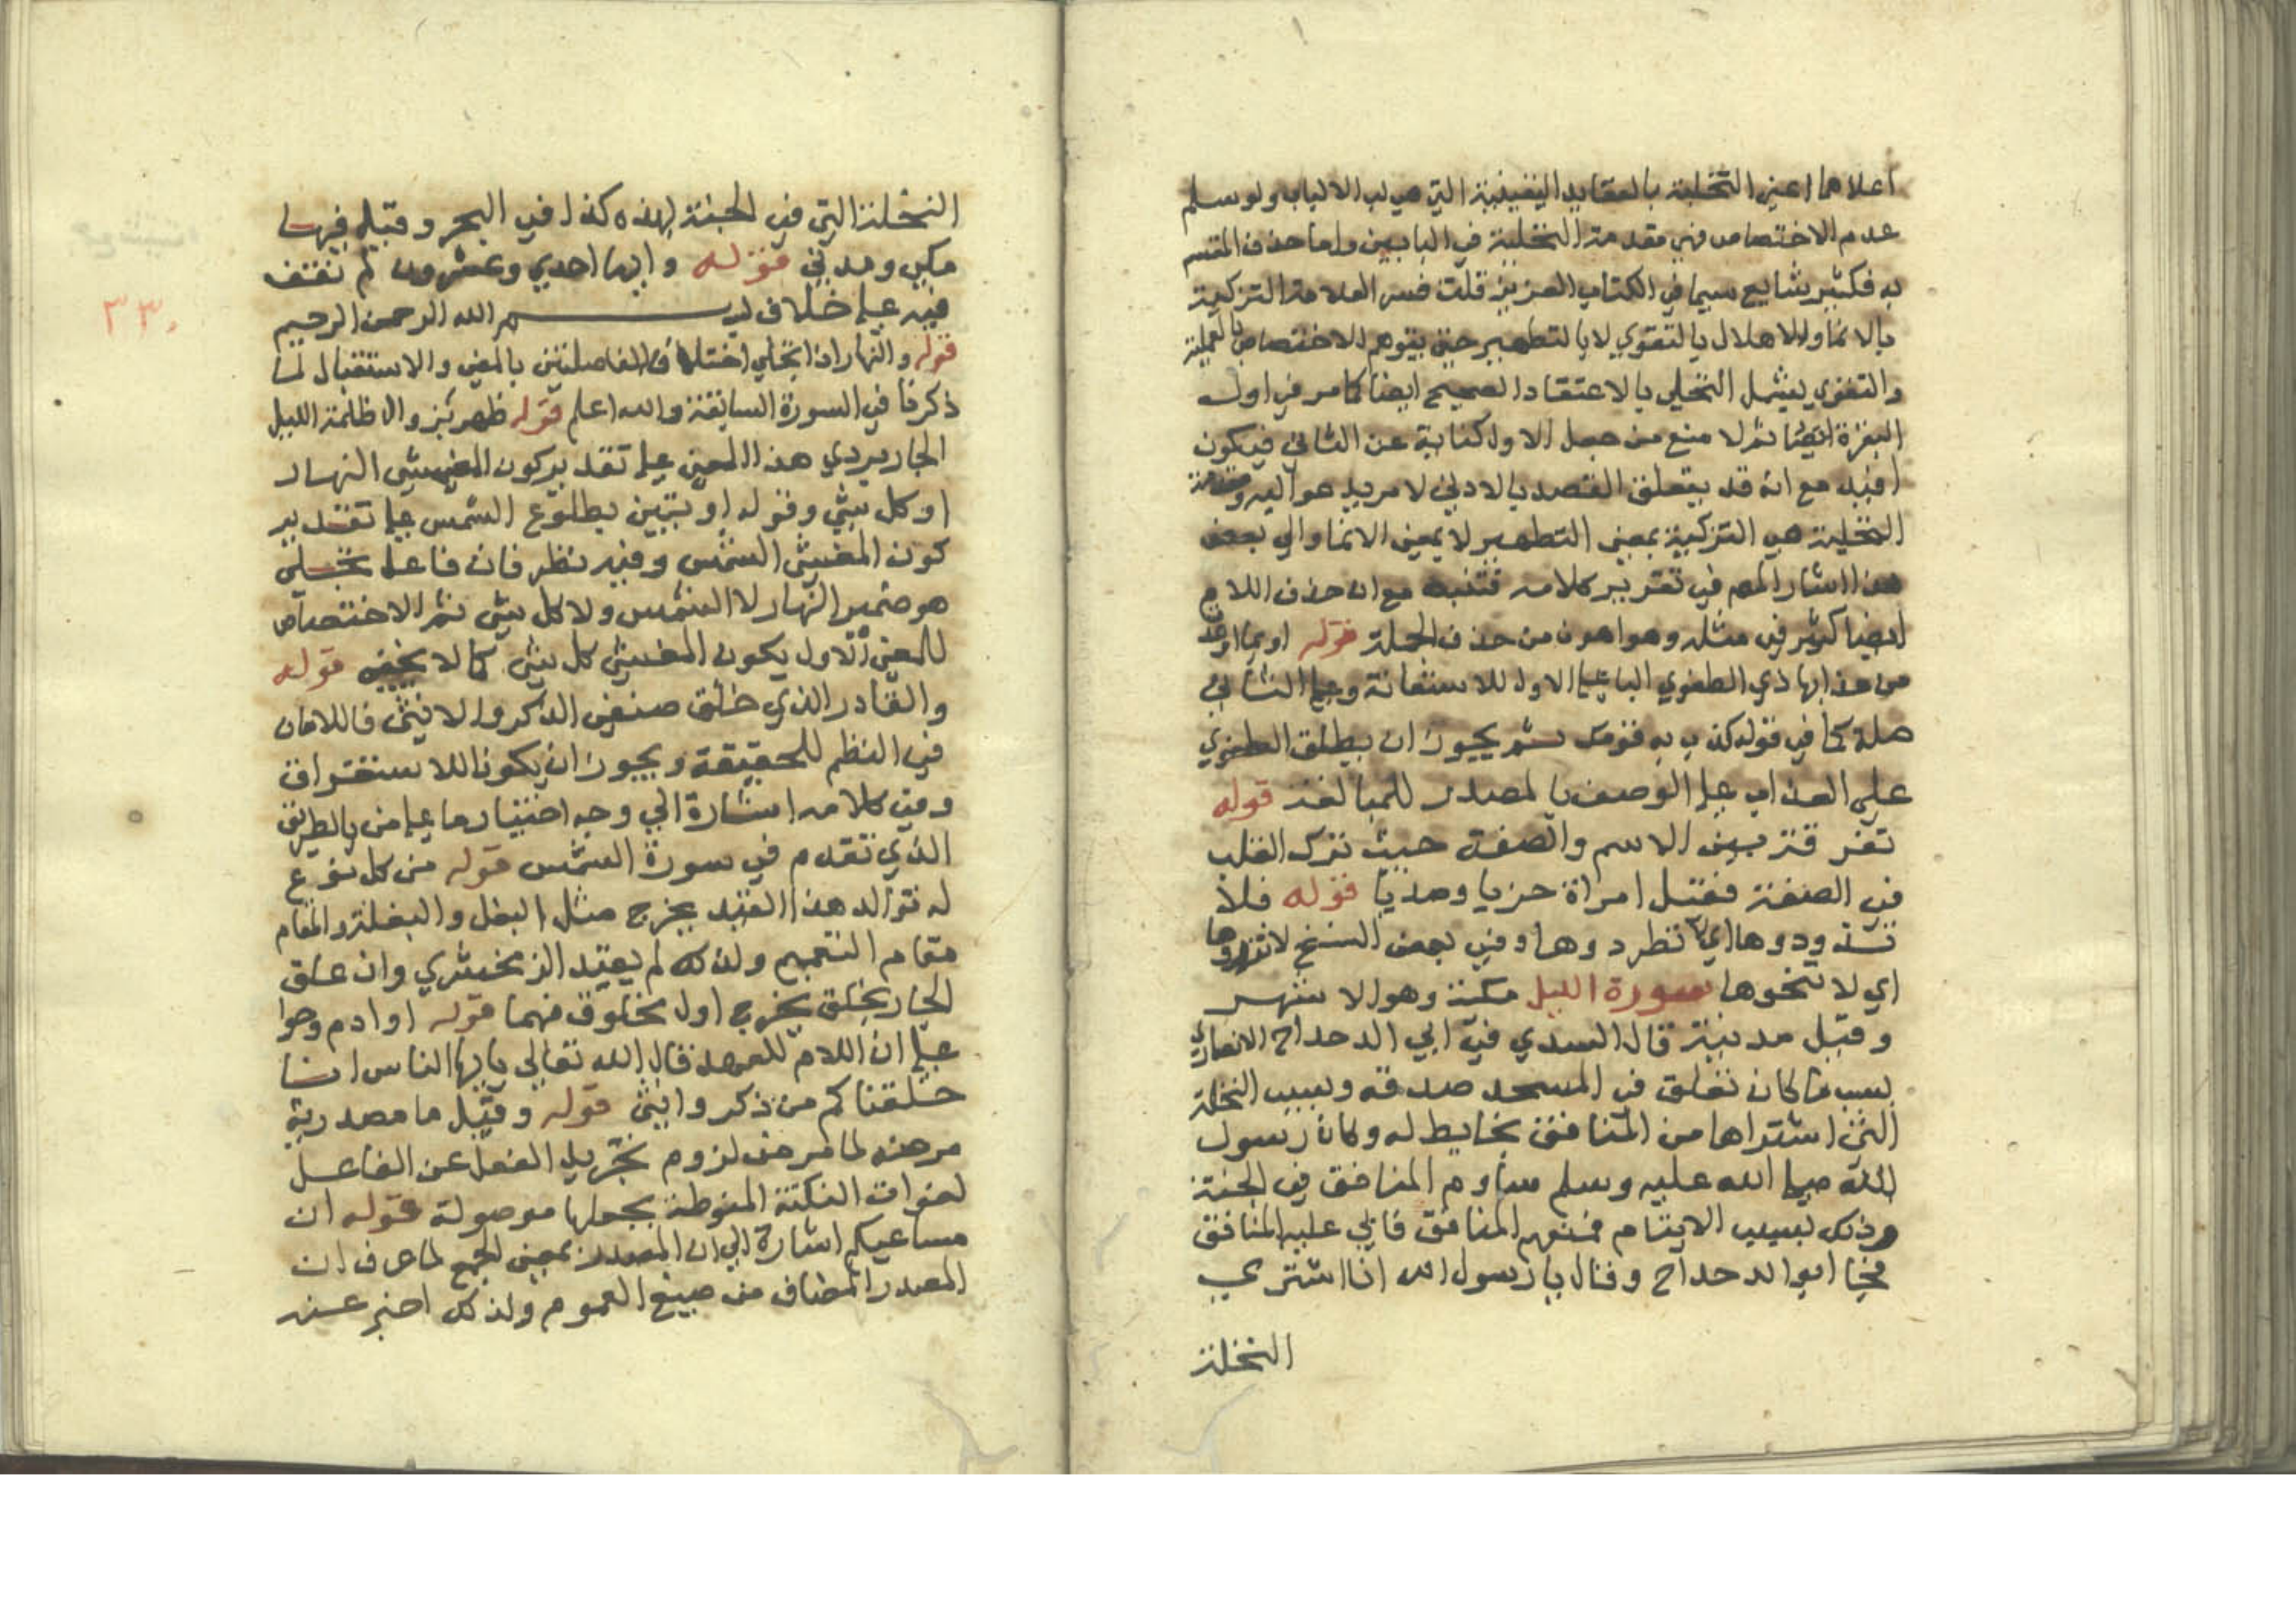 اعلاها اعني التخلية بالعقايد اليقينية التي هي لب الالباب ولو سلم
عدم الاختصاص فهي مقدمة التخلية في البابين واما حذف المقسم
به فكثير شايع سيما في الكتاب العزيز قلت فسر العلامة التزكية
بالانما والاعلال بالتقوي لا بالتطهير حتى يتوهم الاختصاص بالعملية
والتقوي يشمل التحلي بالاعتقاد الصحيح ايضا كما مر في اول
البقرة ايضا ثم لا منع من جعل الاول كناية عن الثاني فيكون
افيد مع انه قد يتعلق القصد بالادني لامر يدعو اليه ومقدمة
التحلية هي التزكية بمعني التطهير لا بمعني الانما والي بعض
هذا اشار المص في تقرير كلامه فتنبه مع ان حذف اللام
ايضا كثير في مثله وهو اهون من حذف الجملة قوله او بما اوعدت
من عذابها ذي الطغوي البا علي الاول للاستعانة وعلي الثاني
صلة كما في قوله كذب به قومك ثم يجوز ان يطلق الطغوي
علي العذاب علي الوصف بالمصدر للمبالغة قوله
تفرقة بين الاسم والصفة حيث ترك القلب
في الصفة فقيل امراة خزيا وصديا قوله فلا
تذودوها اي لا تطردوها وفي بعض النسخ لا تزووها
اي لا تنحوها سورة الليل مكية وهو الاشهر
وقيل مدنية قال السدي في ابي الدحداح الانصاري
بسبب ما كان تعلق في المسجد صدقة وبسبب النخلة
التي اشتراها من المنافق بحايط له وكان رسول
الله صلي الله عليه وسلم ساوم المنافق في الجنة
وذلك بسبب الايتام فمنعهم المنافق فابي عليه المنافق
فجا ابو الدحداح وقال يا رسول الله انا اشتري
النخلة
النخلة التي في الجنة لهذه كذا في البحر وقيل فيها
مكي ومدني قوله وايها احدي وعشرون لم نقف
فيه علي خلاف بسم الله الرحمن الرحيم
قوله والنهار اذا تجلي اختلاف الفاصلتين بالمضي والاستقبال لما
ذكرنا في السورة السابقة والله اعلم قوله ظهر بزوال ظلمة الليل
الجاربردي هذا المعني علي تقدير كون المغشي النهار
او كل شي وقوله او تبين بطلوع الشمس علي تقدير
كون المغشي الشمس وفيه نظر فان فاعل تجلي
هو ضمير النهار لا الشمس ولا كل شي ثم الاختصاص
للمعني الاول يكون المغشي كل شي كما لا يخفي قوله
والقادر الذي خلق صنفي الذكر والانثي فاللامان
في النظم للحقيقة ويجوز ان يكونا للاستغراق
وفي كلامه اشارة الي وجه اختيار ما علي من بالطريق
الذي تقدم في سورة الشمس قوله من كل نوع
له توالد هذا القيد يخرج مثل البغل والبغلة والمقام
مقام التعميم ولذلك لم يقيد الزمخشري وان علق
الجار بخلق يخرج اول مخلوق فهما قوله او ادم وحوا
علي ان اللام للعهد قال الله تعالي يا ايها الناس انا
خلقناكم من ذكر وانثي قوله وقيل ما مصدرية
مرضه لما مر من لزوم تجريد الفعل عن الفاعل
لفوات النكتة المنوطة بجعلها موصولة قوله ان
مساعيكم اشارة الي ان المصدر بمعني الجمع لما عرف ان
المصدر المضاف من صيغ العموم ولذلك اخبر عنه
٣٣٠